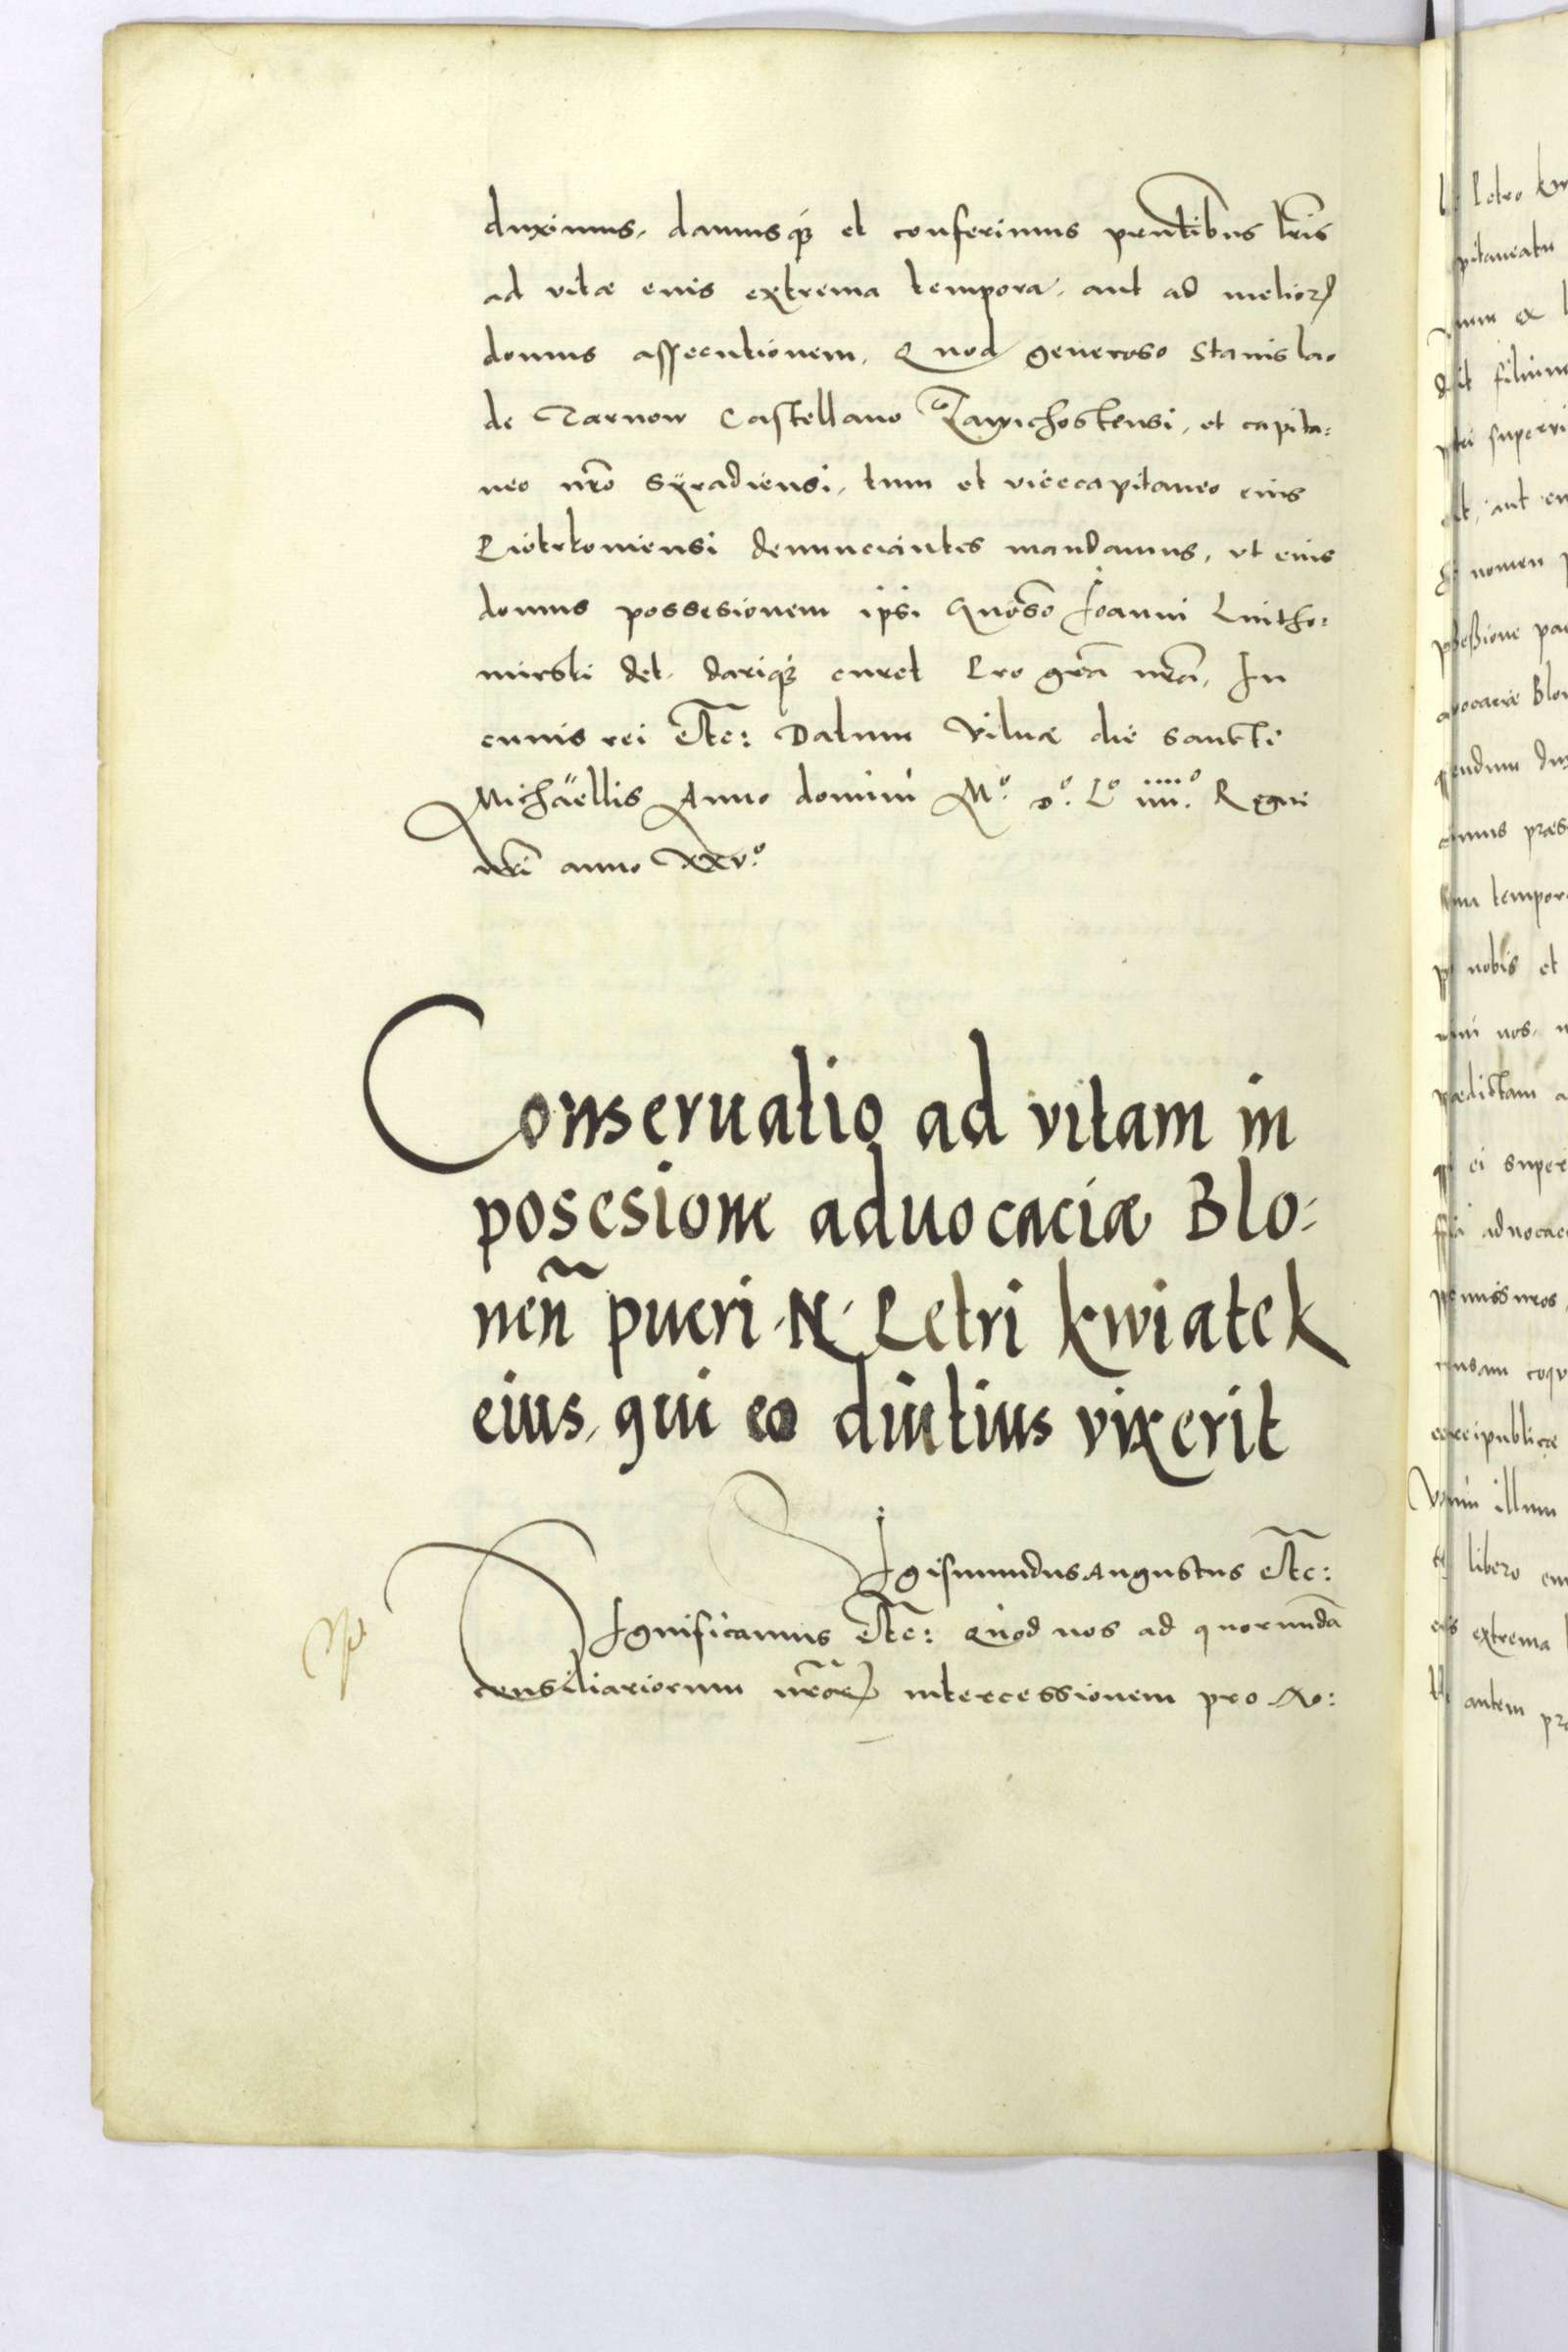 duximus, damusq₃ et conferimus prntibus lris
ad vitæ euis extrema tempora, aut ad melior₂
domus assecutionem. Quod generoso Stanislao
de Tarnow Castellano Zawichostensi, et capita:
neo nro Syradiensi, tum et vicecapitaneo eius
Piotrkoniensi denunciantes mandamus, vt eius
domus possesionem ipsi Gnoso Joanni Luitho:
mirski det, dariq₃ curet Pro gra nra, In
cuuis rei Etc: Datum Vilnæ die sancti
Michäellis Anno domini Mº. Dº. Lº iiiiº. Regni
nri anno XXVº.
Conseruatio ad vitam in
posesione aduocaciæ Blo:
neñ pueri N. Petri kwiatek
eius, qui eo diutius vixerit
SIgismundus Augustus Etc:
SIgnificamus Etc: Quod nos ad quorumda
consiliariorum nror₂ intercessionem pro No:
Petro
pitaneatu
filium
superui
aut
nomen
aduocaciæ Blo
tempor
nobis et
nos
ei super
aduocac
reipublicæ
illum
libero
extrema
autem